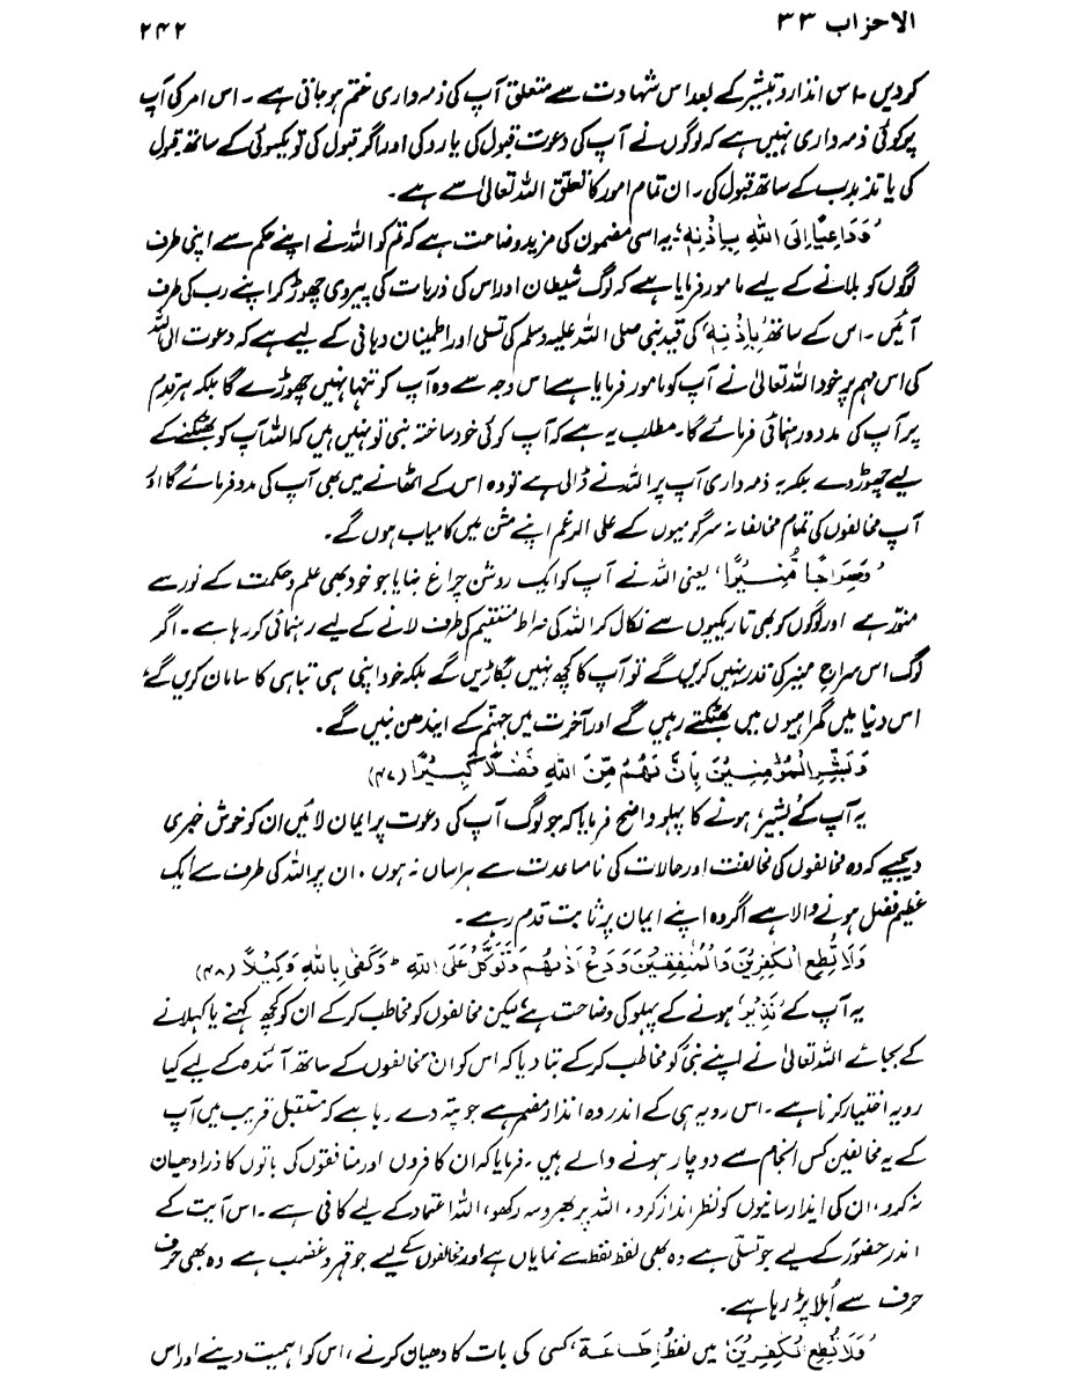 الاحزاب ۳۳
۲۴۲
کردیں۔ اس انذار و تبشیر کے بعد اس شہادت سے متعلق آپ کی ذمہ داری ختم ہو جاتی ہے۔ اس امر کی آپ
پر کوئی ذمہ داری نہیں ہے کہ لوگوں نے آپ کی دعوت قبول کی یا رد کی اور اگر قبول کی تو یکسوئی کے ساتھ قبول
کی یا تذبذب کے ساتھ قبول کی۔ ان تمام امور کا تعلق اللہ تعالیٰ سے ہے۔
’وَدَاعِيًا اِلَى اللّٰهِ بِاِذْنِهٖ‘ یہ اسی مضمون کی مزید وضاحت ہے کہ تم کو اللہ نے اپنے حکم سے اپنی طرف
لوگوں کو بلانے کے لیے مامور فرمایا ہے کہ لوگ شیطان اور اس کی ذریات کی پیروی چھوڑ کر اپنے رب کی طرف
آئیں۔ اس کے ساتھ ’بِاِذْنِهٖ‘ کی قید نبی صلی اللہ علیہ وسلم کی تسلی اور اطمینان دہانی کے لیے ہے کہ دعوت الی اللہ
کی اس مہم پر خود اللہ تعالیٰ نے آپ کو مامور فرمایا ہے اس وجہ سے وہ آپ کو تنہا نہیں چھوڑے گا بلکہ ہر قدم
پر آپ کی مدد و رہنمائی فرمائے گا۔ مطلب یہ ہے کہ آپ کوئی خود ساختہ نبی تو نہیں ہیں کہ اللہ آپ کو بھٹکنے کے
لیے چھوڑ دے بلکہ یہ ذمہ داری آپ پر اللہ نے ڈالی ہے تو وہ اس کے اٹھانے میں بھی آپ کی مدد فرمائے گا اور
آپ مخالفوں کی تمام مخالفانہ سرگرمیوں کے علی الرغم اپنے مشن میں کامیاب ہوں گے۔
’وَسِرَاجًا مُّنِيْرًا‘ یعنی اللہ نے آپ کو ایک روشن چراغ بنایا جو خود بھی علم و حکمت کے نور سے
منوّر ہے اور لوگوں کو بھی تاریکیوں سے نکال کر اللہ کی صراط مستقیم کی طرف لانے کے لیے رہنمائی کر رہا ہے۔ اگر
لوگ اس سراجِ منیر کی قدر نہیں کریں گے تو آپ کا کچھ نہیں بگاڑیں گے بلکہ خود اپنی ہی تباہی کا سامان کریں گے،
اس دنیا میں گمراہیوں میں بھٹکتے رہیں گے اور آخرت میں جہنّم کے ایندھن بنیں گے۔
وَبَشِّرِ الْمُؤْمِنِيْنَ بِاَنَّ لَهُمْ مِّنَ اللّٰهِ فَضْلًا كَبِيْرًا (۴۷)
یہ آپ کے ’بشیر‘ ہونے کا پہلو واضح فرمایا کہ جو لوگ آپ کی دعوت پر ایمان لائیں ان کو خوش خبری
دیجیے کہ وہ مخالفوں کی مخالفت اور حالات کی نامساعدت سے ہراساں نہ ہوں۔ ان پر اللہ کی طرف سے ایک
عظیم فضل ہونے والا ہے اگر وہ اپنے ایمان پر ثابت قدم رہے۔
وَلَا تُطِعِ الْكٰفِرِيْنَ وَالْمُنٰفِقِيْنَ وَدَعْ اَذٰىهُمْ وَتَوَكَّلْ عَلَى اللّٰهِ ؕ وَكَفٰى بِاللّٰهِ وَكِيْلًا (۴۸)
یہ آپ کے ’نَذِيْر‘ ہونے کے پہلو کی وضاحت ہے لیکن مخالفوں کو مخاطب کر کے ان کو کچھ کہنے یا کہلانے
کے بجائے اللہ تعالیٰ نے اپنے نبیؐ کو مخاطب کر کے بتا دیا کہ اس کو ان مخالفوں کے ساتھ آئندہ کے لیے کیا
رویہ اختیار کرنا ہے۔ اس رویہ ہی کے اندر وہ انذار مضمر ہے جو پتہ دے رہا ہے کہ مستقبل قریب میں آپ
کے یہ مخالفین کس انجام سے دوچار ہونے والے ہیں۔ فرمایا کہ ان کافروں اور منافقوں کی باتوں کا ذرا دھیان
نہ کرو، ان کی ایذا رسانیوں کو نظر انداز کرو، اللہ پر بھروسہ رکھو، اللہ اعتماد کے لیے کافی ہے۔ اس آیت کے
اندر حضورؐ کے لیے جو تسلّی ہے وہ بھی لفظ لفظ سے نمایاں ہے اور مخالفوں کے لیے جو قہر و غضب ہے وہ بھی حرف
حرف سے اُبلا پڑ رہا ہے۔
’وَلَا تُطِعِ الْكٰفِرِيْنَ‘ میں لفظ ’اِطَاعَة‘ کسی کی بات کا دھیان کرنے، اس کو اہمیت دینے اور اس